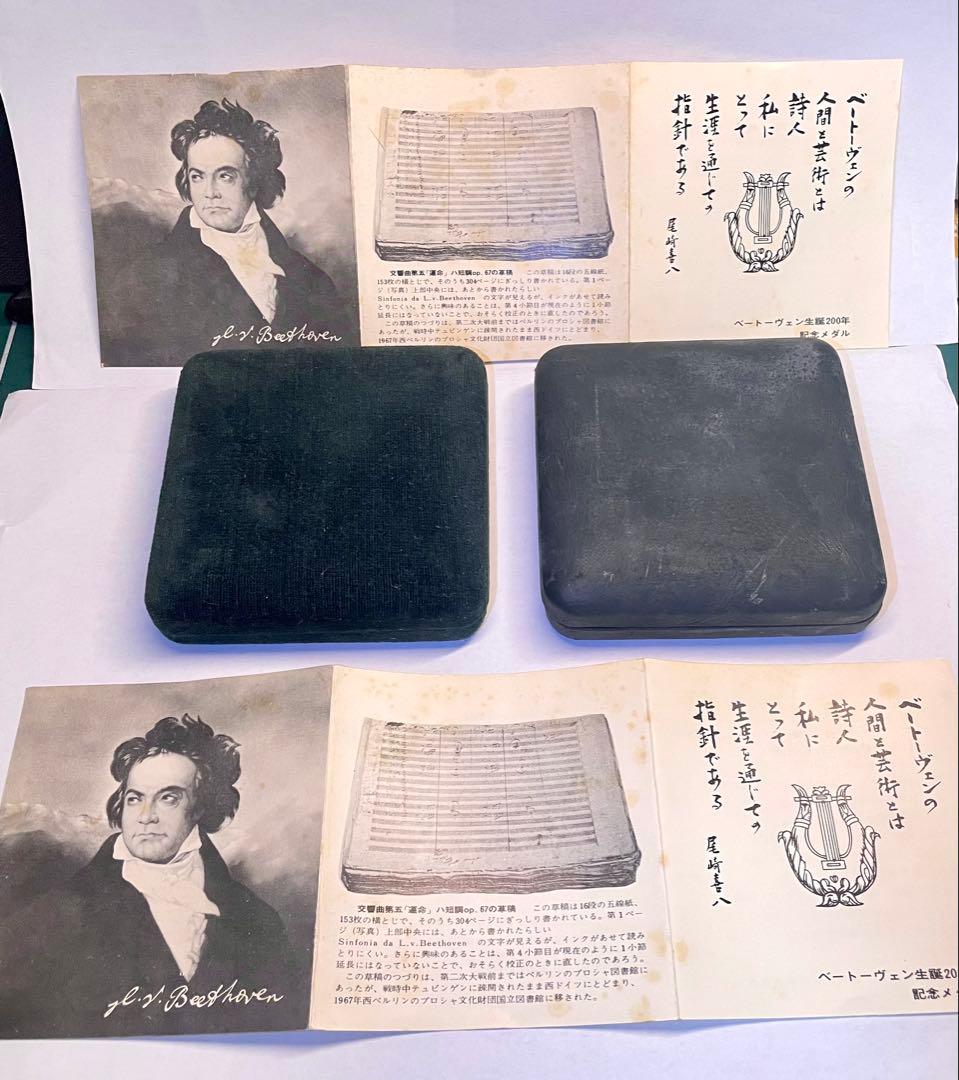 L. V. Beethoven
交響曲第五「運命」ハ短調op. 67の草稿　この草稿は16段の五線紙、
153枚の横とじで、そのうち304ページにぎっしり書かれている。第1ペー
ジ（写真）上部中央には、あとから書かれたらしい
Sinfonia da L.v.Beethoven の文字が見えるが、インクがあせて読み
とりにくい。さらに興味のあることは、第4小節目が現在のように1小節
延長にはなっていないことで、おそらく校正のときに直したのであろう。
この草稿のつづりは、第二次大戦前まではベルリンのプロシャ図書館に
あったが、戦時中チュビンゲンに疎開されたまま西ドイツにとどまり、
1967年西ベルリンのプロシャ文化財団国立図書館に移された。
ベートーヴェンの
人間と芸術とは
詩人
私に
とって
生涯を通じての
指針である
尾崎喜八
ベートーヴェン生誕200年
記念メダル
L. V. Beethoven
交響曲第五「運命」ハ短調op. 67の草稿　この草稿は16段の五線紙、
153枚の横とじで、そのうち304ページにぎっしり書かれている。第1ペー
ジ（写真）上部中央には、あとから書かれたらしい
Sinfonia da L.v.Beethoven の文字が見えるが、インクがあせて読み
とりにくい。さらに興味のあることは、第4小節目が現在のように1小節
延長にはなっていないことで、おそらく校正のときに直したのであろう。
この草稿のつづりは、第二次大戦前まではベルリンのプロシャ図書館に
あったが、戦時中チュビンゲンに疎開されたまま西ドイツにとどまり、
1967年西ベルリンのプロシャ文化財団国立図書館に移された。
ベートーヴェンの
人間と芸術とは
詩人
私に
とって
生涯を通じての
指針である
尾崎喜八
ベートーヴェン生誕20
記念メ